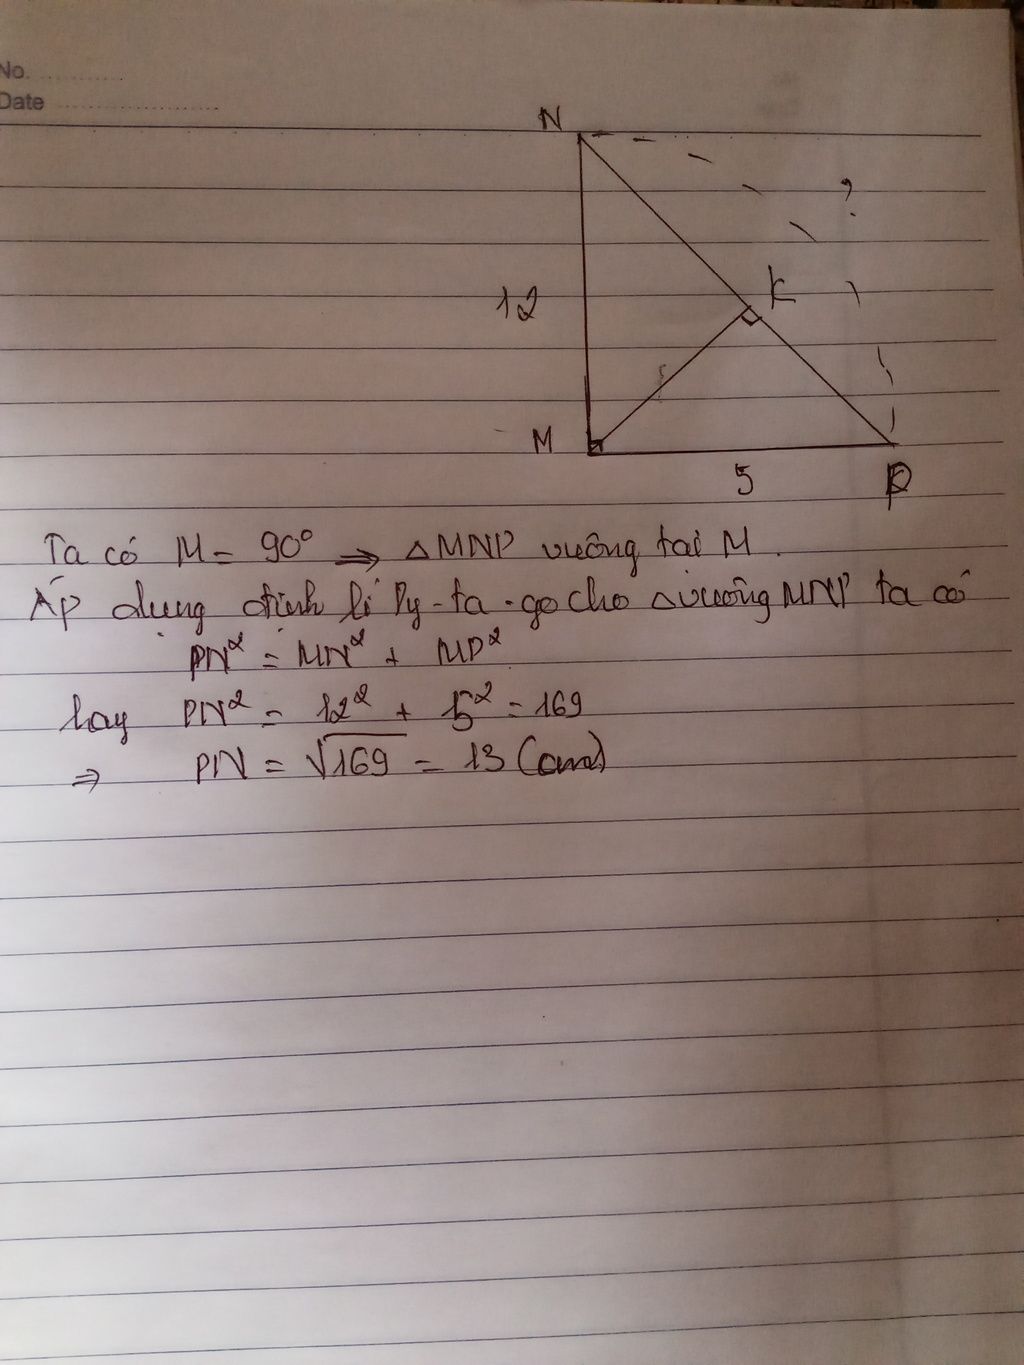 No.
Date
N
?
K
12
M
5
P
Ta có M = 90° ⇒ ΔMNP vuông tại M.
Áp dụng định lí Py-ta-go cho Δvuông MNP ta có
PN² = MN² + MP²
hay PN² = 12² + 5² = 169
⇒ PN = √169 = 13 (cm)